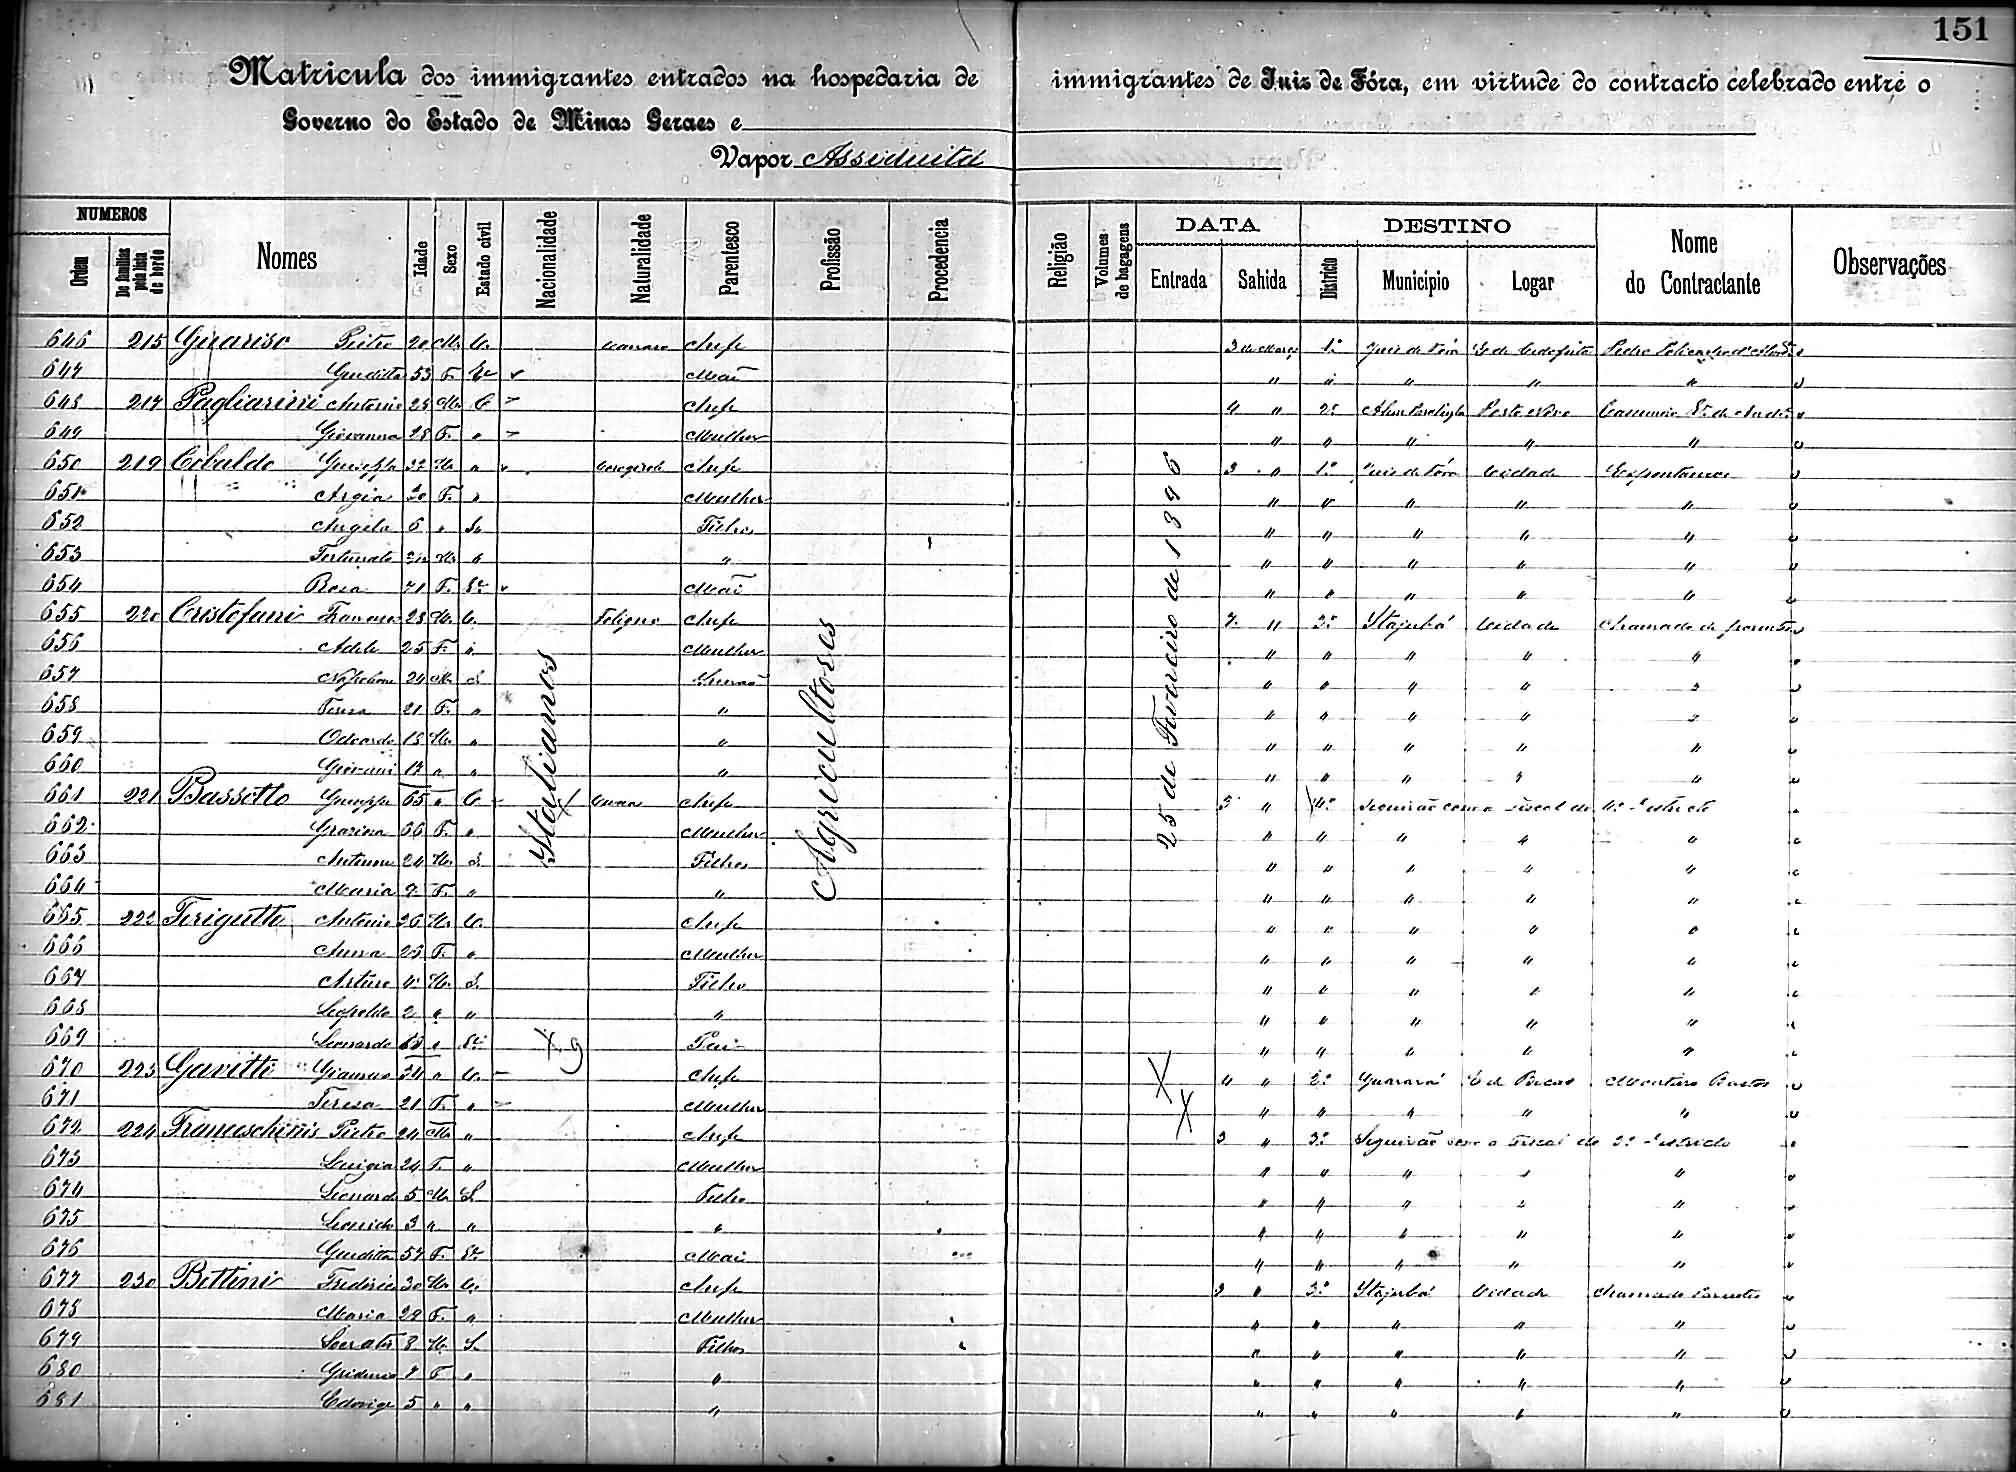 151
Matricula dos immigrantes entrados na hospedaria de immigrantes de Juiz de Fóra, em virtude do contracto celebrado entre o
Governo do Estado de Minas Geraes e
Vapor Assiduita
NUMEROS DATA DESTINO
Ordem De familias pela lista de bordo Nomes Idade Sexo Estado civil Nacionalidade Naturalidade Parentesco Profissão Procedencia Religião Volumes de bagagens Entrada Sahida Districto Municipio Logar Nome do Contractante Observações
Italianos
Agricultores
25 de Fevereiro de 1896
646 215 Guariso Pietro 20 M. C. Chefe 3 de Março 1º Juiz de Fóra
647 Giuditta 53 F. Mãi " " " " "
648 217 Pagliarini Antonio 28 M. C Chefe 4 " 2º
649 Giovanna 28 F. " Mulher " " " " "
650 219 Giuseppe 32 M. " Chefe 3 " 1º Juiz de Fóra Cidade Expontaneo
651 Argia 30 F. " Mulher " " " " "
652 Angela 6 " Filhos " " " " "
653 Fortunato M. " " " " " " "
654 Rosa 71 F. Mãi " " " " "
655 220 Cristofani Francesco 28 M. C. Foligno Chefe 7 " 3º Itajubá Cidade Chamado de parentes
656 Adele 25 F. " Mulher " " " " "
657 Napoleone 24 M. S. Irmão " " " " "
658 Teresa 21 F. " " " " " " "
659 Odoardo 18 M. " " " " " " "
660 Giovani 17 " " " " " " " "
661 221 Bassotto Giuseppe 65 " C Chefe 5 " 4º Seguirão com o Fiscal do 4º Districto
662 Graziosa 66 F. " Mulher " " " " "
663 Antonio 24 M. S. Filhos " " " " "
664 Maria 9 F. " " " " " " "
665 222 Antonio 26 M. C. Chefe " " " " "
666 Anna 25 F. " Mulher " " " " "
667 Arturo 4 M. S. Filho " " " " "
668 Leopoldo 2 " " " " " " " "
669 Leonardo " Pai " " " " "
670 223 Gavetti 24 " C. Chefe 4 " 2º Guarará E. de Bicas Martins Bastos
671 Teresa 21 F. " Mulher " " " " "
672 224 Franceschinis Pietro 24 M. " Chefe 3 " 3º Seguirão com o Fiscal do 3º Districto
673 Luigia 24 F. " Mulher " " " " "
674 Leonardo 5 M. S. Filho " " " " "
675 3 " " " " " " " "
676 Giuditta 57 F. Mãi " " " " "
677 230 Bettini Frederico 30 M. C. Chefe 3 " 3º Itajubá Cidade Chamado Parentes
678 Maria 29 F. " Mulher " " " " "
679 Socrate 8 M. S. Filhos " " " " "
680 7 F " " " " " " "
681 Edvige 5 " " " " " " " "